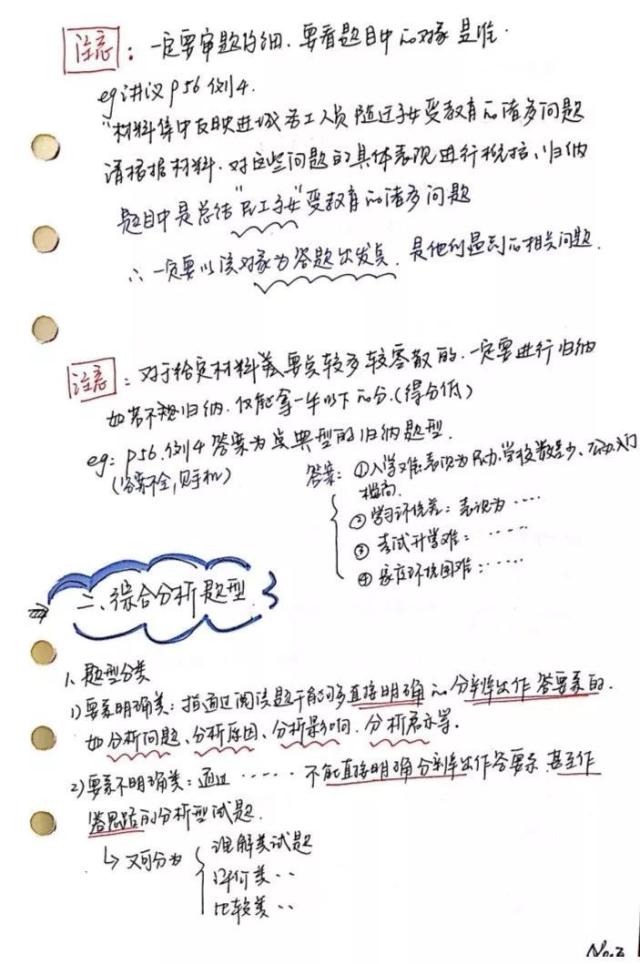 注意：一定要审题仔细，要看题目中的对象是谁.
eg讲议P56例4.
"材料集中反映进城务工人员随迁子女受教育的诸多问题
请根据材料，对这些问题的具体表现进行概括、归纳
题目中是总结"民工子女"受教育的诸多问题
∴一定要以该对象为答题出发点，是他们遇到的相关问题.
注意：对于给定材料若要点较多较零散的，一定要进行归纳
如若不归纳，仅能拿一半以下的分.(得分低)
eg：P56.例4答案为典型的归纳题型.
(答案不全,见手机)
答案：①入学难:表现为公办学校数量少、入门
槛高.
②学习环境差：表现为……
③考试升学难：……
④家庭环境困难：……
二、综合分析题型
1、题型分类
1)要素明确类：指通过阅读题干能够直接明确的分辨出作答要素的.
如分析问题、分析原因、分析影响、分析启示等.
2)要素不明确类：通过……不能直接明确分辨出作答要素,甚至作
答思路的分析型试题.
↳又可分为
理解类试题
评价类‥
比较类‥
No.3